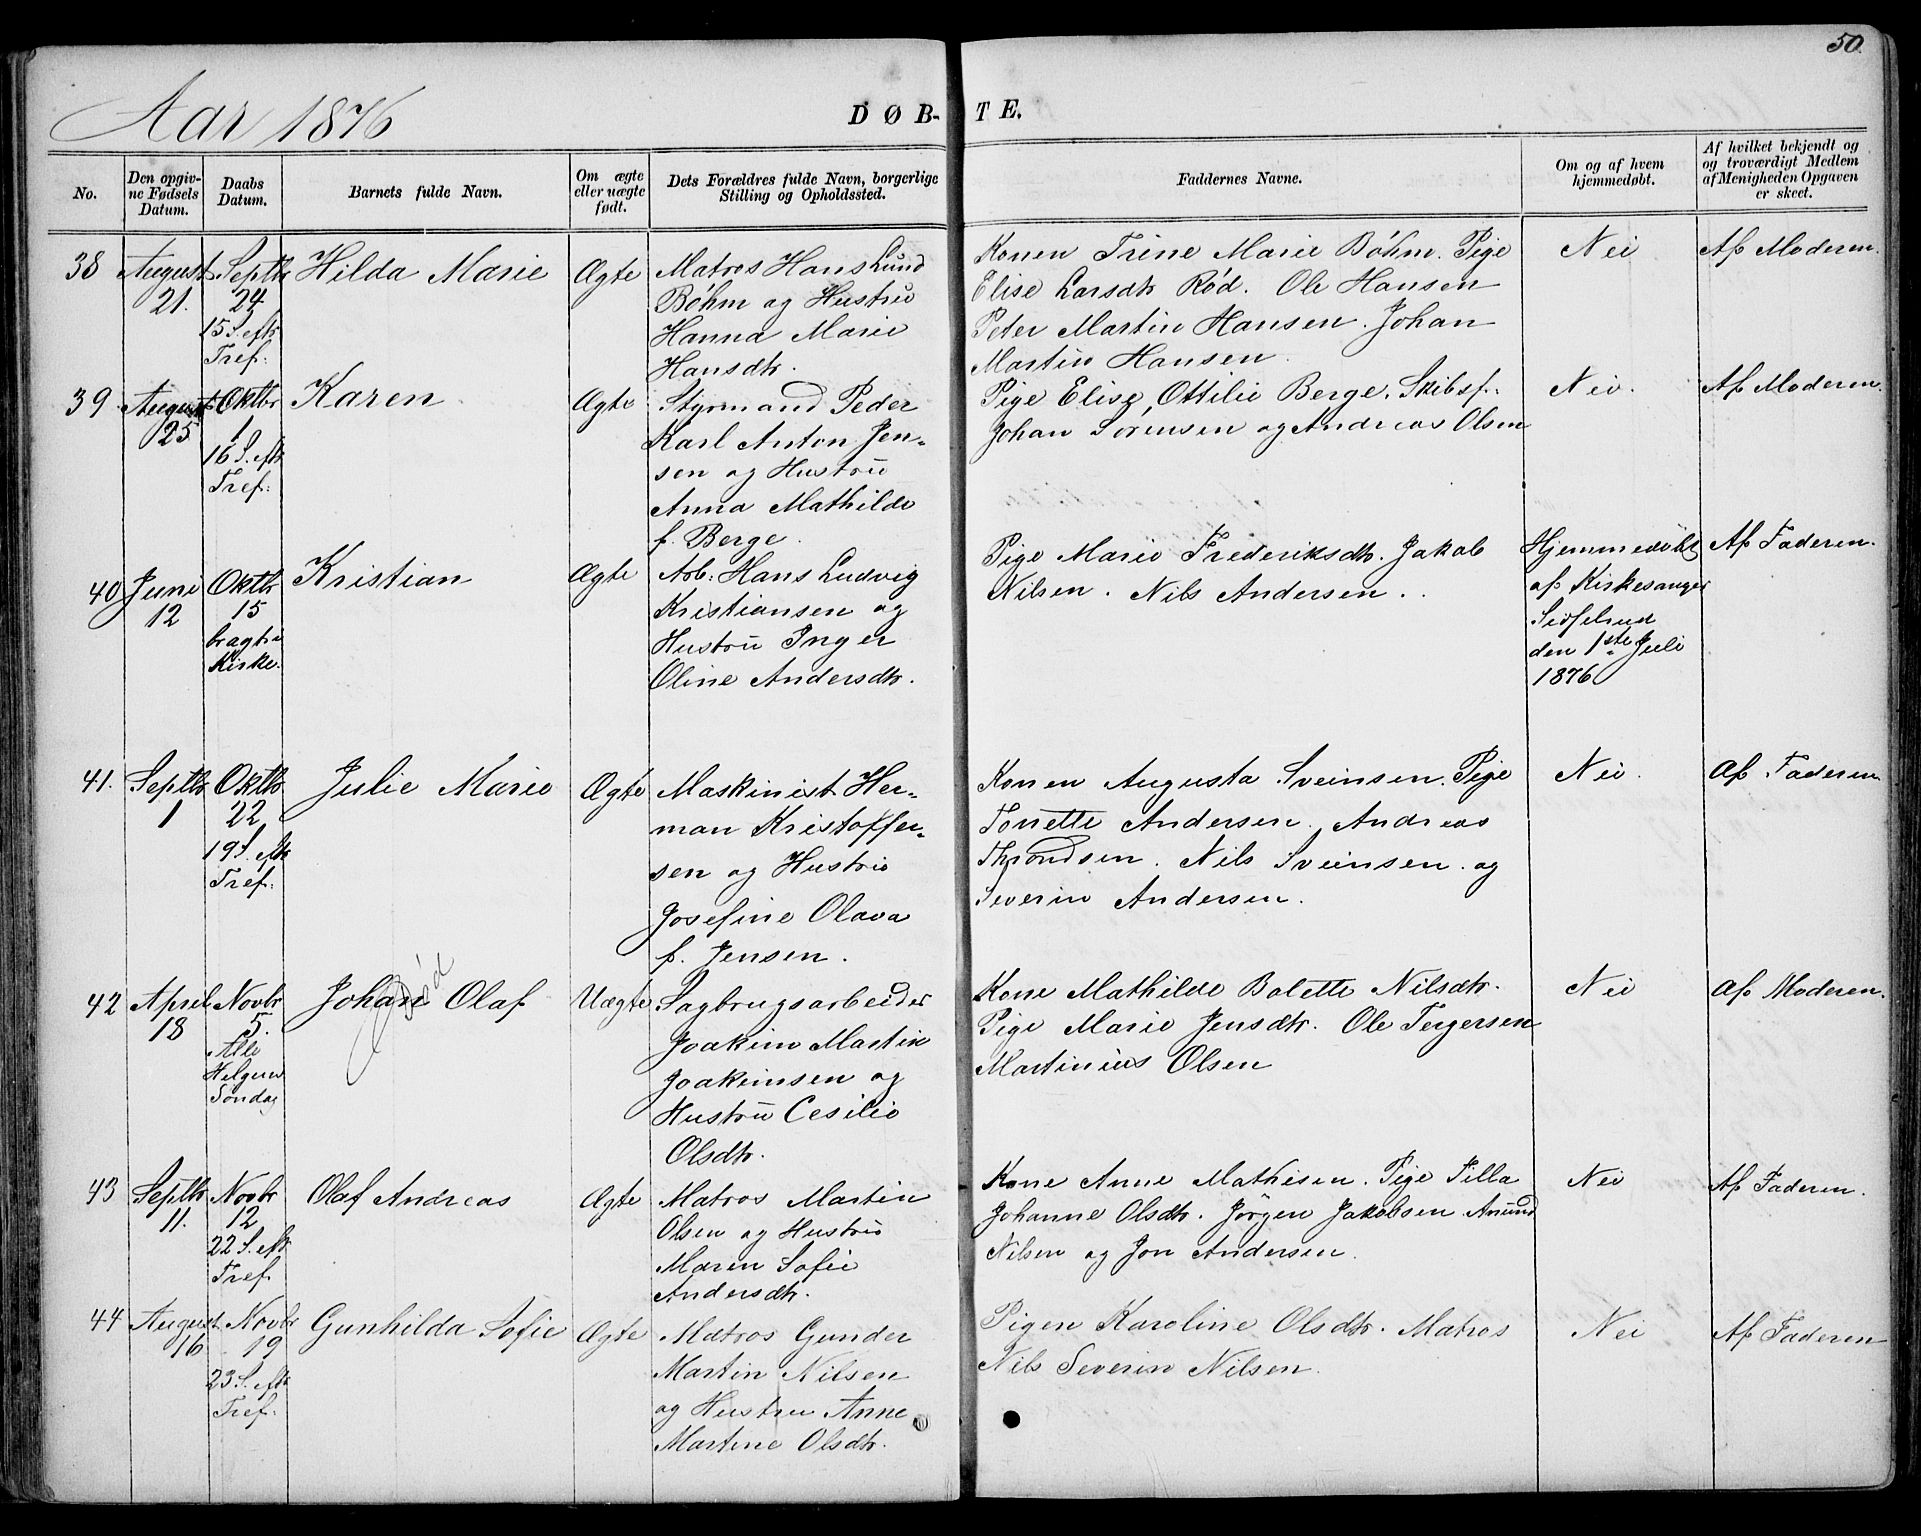 50.
Aar 1876
DØB-TE.
No.
Den opgiv-
ne Fødsels
Datum.
Daabs
Datum.
Barnets fulde Navn.
Om ægte
eller uægte
født.
Dets Forældres fulde Navn, borgerlige
Stilling og Opholdssted.
Faddernes Navne.
Om og af hvem
hjemmedøbt.
Af hvilket bekjendt og
og troværdigt Medlem
af Menigheden Opgaven
er skeet.
38
August
21.
Septbr
24
15 S. eftr
Tref:
Hilda Marie
Ægte
Matros Hans Lund
Bøhm og Hustru
Hanna Marie
Hansdtr.
Konen Trine Marie Bøhm. Pige
Elise Larsdtr Rød. Ole Hansen
Peter Martin Hansen. Johan
Martin Hansen.
Nei
Af Moderen.
39
August
25
Oktbr
1
16 S. eftr
Tref:
Karen
Ægte
Styrmand Peder
Karl Anton Jen-
sen og Hustru
Anna Mathilde
f. Berge.
Pige Elise, Ottilie Berge. Skibsf.
Johan Sørensen og Andreas Olsen
Nei.
Af Moderen.
40
Juni
12
Oktbr
15
bragt i
Kirke.
Kristian
Ægte
Arb: Hans Ludvig
Kristiansen og
Hustru Inger
Oline Andersdtr.
Pige Marie Frederiksdtr. Jakob
Nilsen. Nils Andersen.
Hjemmedøbt
af Kirkesanger
den 1ste Juli
1876
Af Faderen.
41.
Septbr
1
Oktbr
22
19 S. eftr
Tref:
Julie Marie
Ægte
Maskinist Her-
man Kristoffer-
sen og Hustru
Josefine Olava
f. Jensen.
Konen Augusta Sveinsen. Pige
Tonette Andersen. Andreas
Throndsen. Nils Sveinsen. og
Severin Andersen.
Nei.
Af Faderen
42
April
18
Novbr
5.
Alle
Helgens
Søndag
Johan Olaf
Død
Uægte
Sagbrugsarbeider
Joakim Martin
Joakimsen og
Hustru Cesilie
Olsdtr.
Kone Mathilde Bolette Nilsdtr.
Pige Marie Jensdtr. Ole Tergersen
Martinius Olsen
Nei
Af Moderen.
43
Septbr
11.
Novbr
12
22 S. eftr
Tref.
Olaf Andreas
Ægte
Matros Martin
Olsen og Hustru
Maren Sofie
Andersdtr.
Kone Anne Mathisen. Pige Silla
Johanne Olsdtr. Jørgen Jakobsen. Anund
Nilsen og Jon Andersen.
Nei
Af Faderen.
44
August
16
Novbr
19
23 S. eftr
Tref:
Gunhilda Sofie
Ægte
Matros Gunder
Martin Nilsen
og Hustru Anne
Martine Olsdtr.
Pigen Karoline Olsdtr. Matros
Nils Severin Nilsen.
Nei
Af Faderen